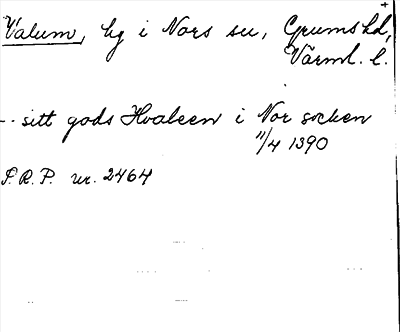 Valum, hg i Nors sn, Grums hd,
Värml. l.
-- sitt gods Hvaleen i Nor socken
11/4 1390
S.R.P. nr. 2464